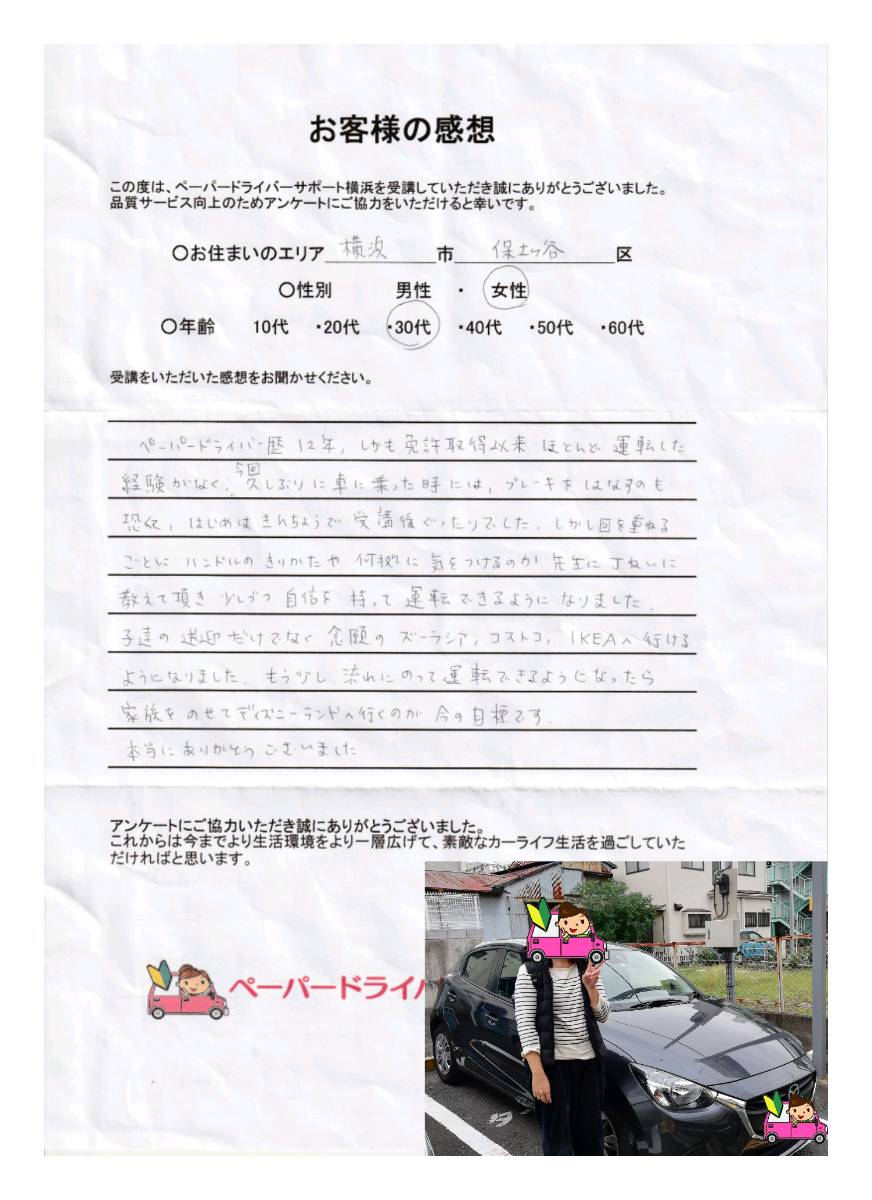 お客様の感想
この度は、ペーパードライバーサポート横浜を受講していただき誠にありがとうございました。
品質サービス向上のためアンケートにご協力をいただけると幸いです。
○お住まいのエリア 横浜 市 保土ヶ谷 区
○性別 男性 ・ 女性
○年齢 10代 ・20代 ・30代 ・40代 ・50代 ・60代
受講をいただいた感想をお聞かせください。
ペーパードライバー歴12年, しかも免許取得以来 ほとんど 運転した
経験がなく, 今回久しぶりに車に乗った時には, ブレーキを はなすのも
恐く, はじめは きんちょうで 受講後ぐったりでした. しかし回を重ねる
ごとに ハンドルの きりかたや 何処に 気をつけるのか 先生に 丁ねいに
教えて頂き 少しづつ 自信を 持って 運転できるように なりました.
子達の 送迎だけでなく 念願の ズーラシア, コストコ, IKEAへ行ける
ようになりました. もう少し 流れにのって運転できるようになったら
家族を のせてディズニーランドへ行くのが 今の目標です.
本当にありがとうございました
アンケートにご協力いただき誠にありがとうございました。
これからは今までより生活環境をより一層広げて、素敵なカーライフ生活を過ごしていた
だければと思います。
ペーパードライバ